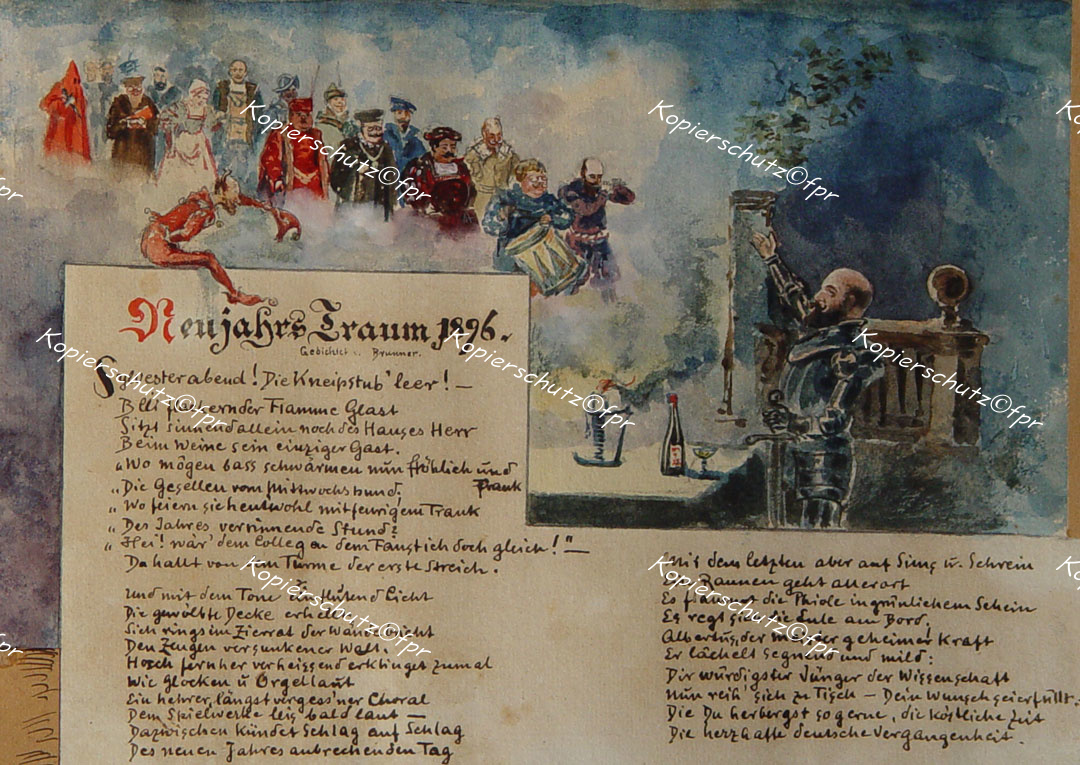 Neujahrs Traum 1896.
Gedichtet v. Brunner.
Sylvesterabend! Die Kneipstub' leer! —
Bei flackernder Flamme Glast
Sitzt sinnend allein noch des Hauses Herr
Beim Weine sein einziger Gast.
„Wo mögen bass schwärmen nun fröhlich und frank
„Die Gesellen vom Mittwochsbund.
„Wo feiern sie heut wohl mit feurigem Trank
„Des Jahres verrinnende Stund?
„Hei! wär' dem Collegen dem Faust ich doch gleich!" —
Da hallt von den Türme der erste Streich.
Und mit dem Tone ein flutend Licht
Die gewölbte Decke erhellt
Sich rings im Zierrat der Wände bricht
Den Zeugen versunkener Welt.
Horch fernher verheissend erklinget zumal
Wie Glocken u Orgellaut
Ein hehrer, längst vergess'ner Choral
Dem Spielwerke leis bald laut —
Dazwischen kündet Schlag auf Schlag
Des neuen Jahres anbrechenden Tag
Mit dem letzten aber auf Sims u. Schrein
Raunen geht allerort
Es flammt die Phiole in grünlichem Schein
Es regt sich die Eule am Bord,
Albertus, der Meister geheimer Kraft
Er lächelt segnend und mild:
Dir würdigster Jünger der Wissenschaft
Nun reih' sich zu Tisch — Dein Wunsch sei erfüllt.
Die Du herbergst so gerne, die köstliche Zeit
Die herzhafte deutsche Vergangenheit.
Kopierschutz©fpr
Kopierschutz©fpr
Kopierschutz©fpr
Kopierschutz©fpr
Kopierschutz©fpr
Kopierschutz©fpr
Kopierschutz©fpr
Kopierschutz©fpr